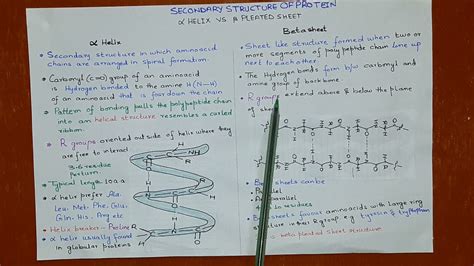 SECONDARY STRUCTURE OF PROTEIN
α HELIX VS β PLEATED SHEET
α Helix
Secondary structure in which aminoacid
chains are arranged in spiral formation.
Carbonyl (C=O) group of an aminoacid
is Hydrogen bonded to the amine H (N-H)
of an aminoacid that is four down the chain
Pattern of bonding pulls the polypeptide chain
into an helical structure resembles a curled
ribbon.
R groups oriented outside of helix where they
are free to interact
3.6 residue
perturn
Typical length 10 a.a
α helix prefer Ala,
Leu, Met, Phe, Glu,
Gln, His, Arg etc
Helix breaker - Proline
α helix usually found
in globular proteins
Beta sheet
Sheet like structure formed when two or
more segments of polypeptide chain line up
next to each other
The Hydrogen bonds form b/w carbonyl and
amine group of backbone
R groups extend above & below the plane
of sheet
Beta sheets can be
Parallel
residues
Beta sheets favour aminoacids with large ring
structure in their R group e.g tyrosin & tryptophan
beta pleated sheet structure